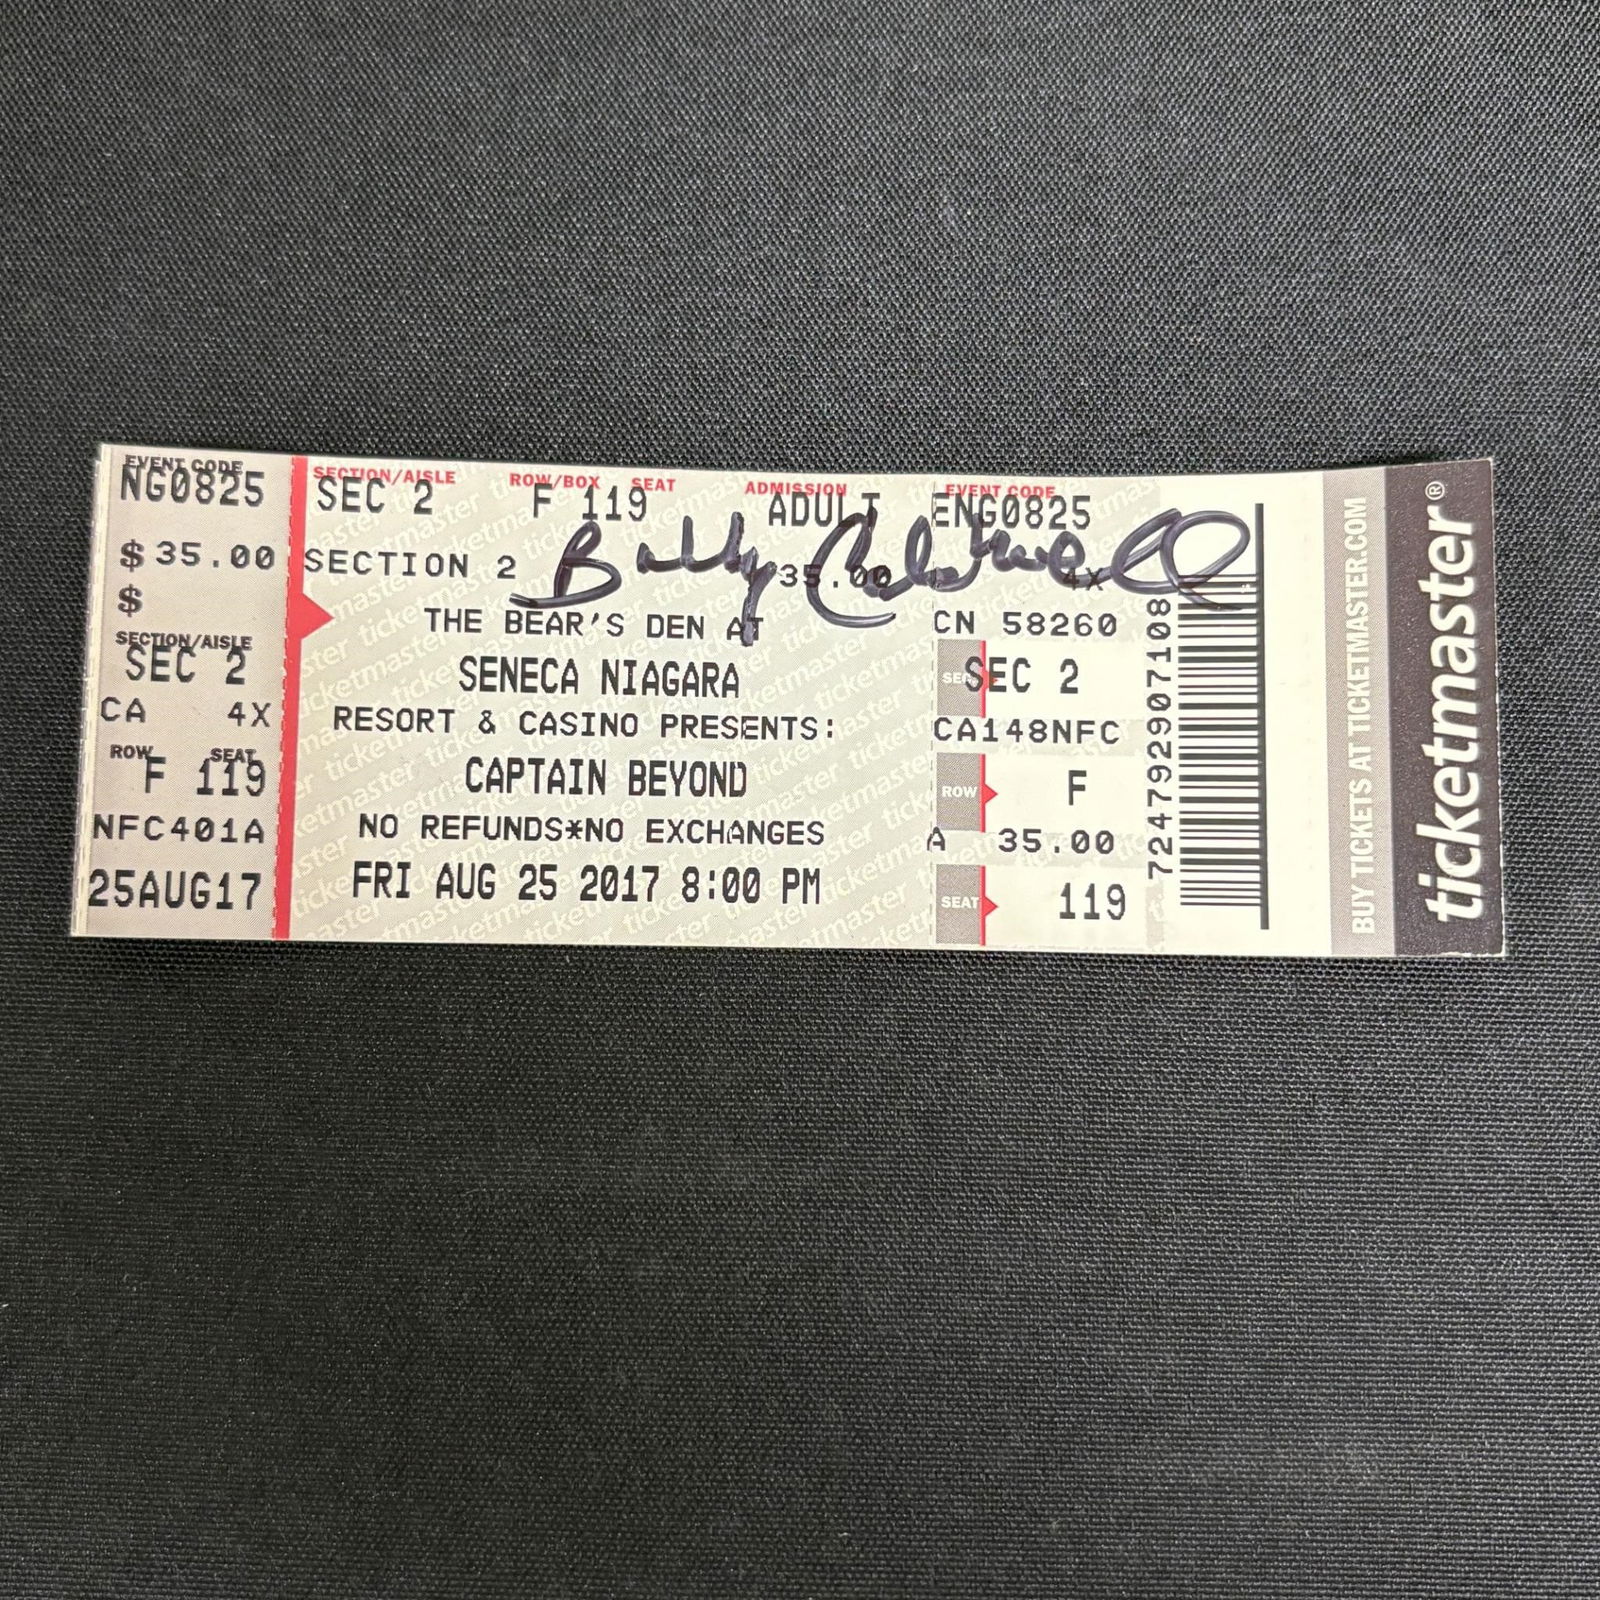 EVENT CODE
NG0825
$ 35.00
$
SECTION/AISLE
SEC 2
CA 4X
ROW SEAT
F 119
NFC401A
25AUG17
SECTION/AISLE ROW/BOX SEAT ADMISSION EVENT CODE
SEC 2 F 119 ADULT ENG0825
Billy Caldwell
SECTION 2 35.00 4X
THE BEAR'S DEN AT
SENECA NIAGARA
RESORT & CASINO PRESENTS:
CAPTAIN BEYOND
NO REFUNDS*NO EXCHANGES
FRI AUG 25 2017 8:00 PM
CN 58260
SEC 2
CA148NFC
ROW F
A 35.00
SEAT 119
724792907108
BUY TICKETS AT TICKETMASTER.COM
ticketmaster®